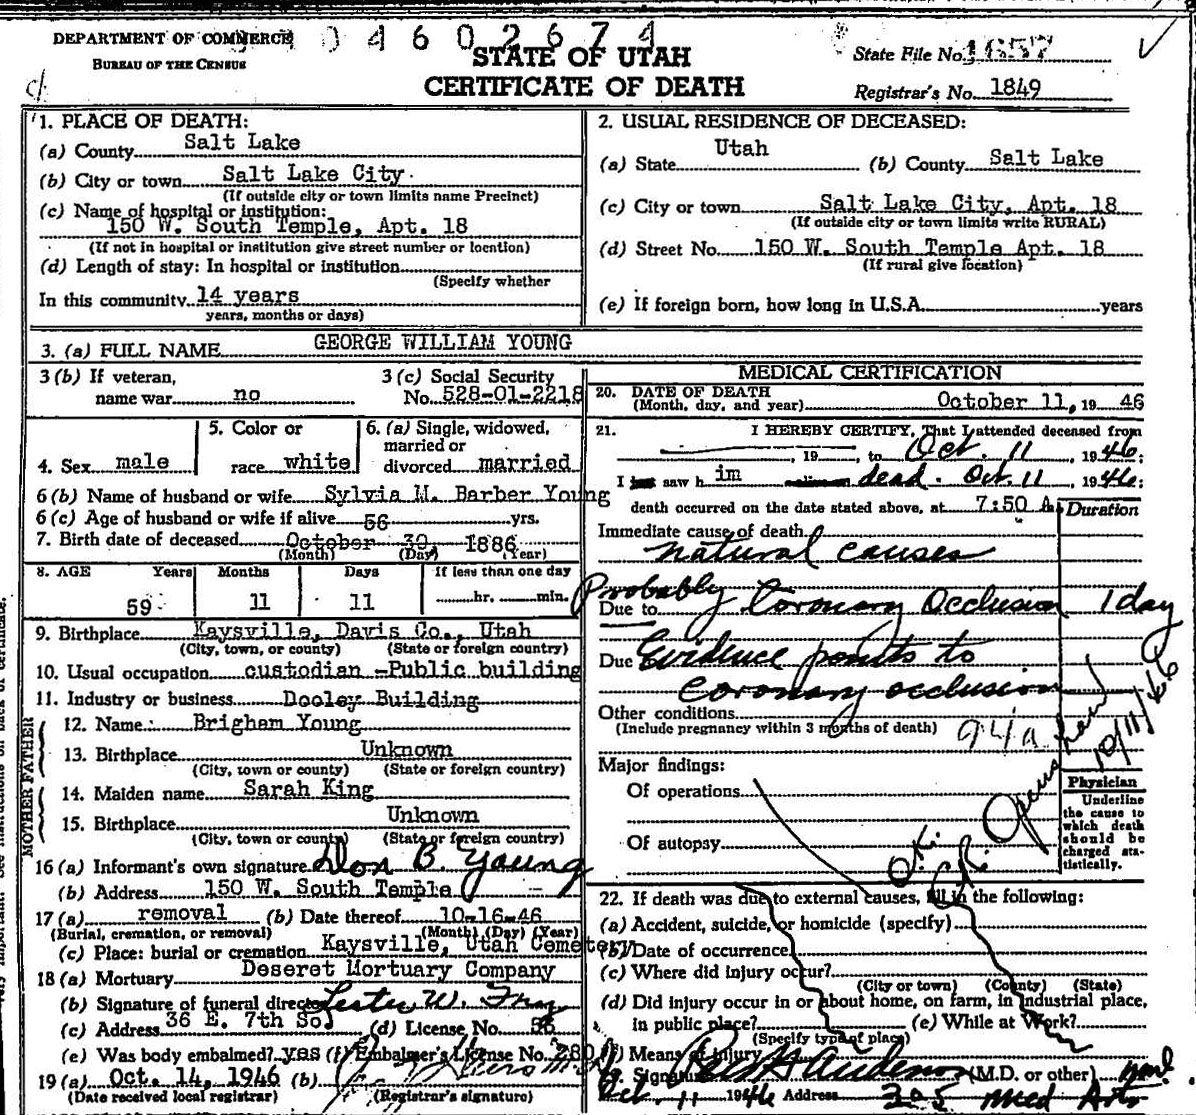 DEPARTMENT OF COMMERCE
BUREAU OF THE CENSUS
0 4 6 0 2 6 7 4
STATE OF UTAH
CERTIFICATE OF DEATH
State File No. 1657
Registrar's No. 1849
1. PLACE OF DEATH:
(a) County Salt Lake
(b) City or town Salt Lake City.
(If outside city or town limits name Precinct)
(c) Name of hospital or institution:
150 W. South Temple, Apt. 18
(If not in hospital or institution give street number or location)
(d) Length of stay: In hospital or institution
(Specify whether
In this community 14 years
years, months or days)
2. USUAL RESIDENCE OF DECEASED:
(a) State Utah (b) County Salt Lake
(c) City or town Salt Lake City, Apt. 18
(If outside city or town limits write RURAL)
(d) Street No. 150 W. South Temple Apt. 18
(If rural give location)
(e) If foreign born, how long in U.S.A. years
3. (a) FULL NAME GEORGE WILLIAM YOUNG
3 (b) If veteran,
name war no
3 (c) Social Security
No. 528-01-2218
4. Sex male
5. Color or
race white
6. (a) Single, widowed,
married or
divorced married
6 (b) Name of husband or wife Sylvia M. Barber Young
6 (c) Age of husband or wife if alive 56 yrs.
7. Birth date of deceased October 30, 1886
(Month) (Day) (Year)
8. AGE Years Months Days If less than one day
59 11 11 hr. min.
9. Birthplace Kaysville, Davis Co., Utah
(City, town, or county) (State or foreign country)
10. Usual occupation custodian -Public building
11. Industry or business Dooley Building
FATHER
12. Name: Brigham Young
13. Birthplace Unknown
(City, town or county) (State or foreign country)
MOTHER
14. Maiden name Sarah King
15. Birthplace Unknown
(City, town or county) (State or foreign country)
16 (a) Informant's own signature Don B. Young
(b) Address 150 W. South Temple
17 (a) removal (b) Date thereof 10-16-46
(Burial, cremation, or removal) (Month) (Day) (Year)
(c) Place: burial or cremation Kaysville, Utah Cemetery
18 (a) Mortuary Deseret Mortuary Company
(b) Signature of funeral director Lester W.
(c) Address 36 E. 7th So. (d) License No. 56
(e) Was body embalmed? yes (f) Embalmer's License No. 280
19 (a) Oct. 14, 1946 (b)
(Date received local registrar) (Registrar's signature)
MEDICAL CERTIFICATION
20. DATE OF DEATH
(Month, day, and year) October 11, 19 46
21. I HEREBY CERTIFY, That I attended deceased from
, 19 , to Oct. 11 , 1946;
I saw h im dead. Oct. 11 , 1946;
death occurred on the date stated above, at 7:50 A. Duration
Immediate cause of death
natural causes
Probably
Due to Coronary Occlusion 1 day
Due Evidence points to
coronary occlusion
Other conditions
(Include pregnancy within 3 months of death)
94a
10/11/46
Major findings:
Of operations
Of autopsy
Physician
Underline
the cause to
which death
should be
charged sta-
tistically.
O.K.
22. If death was due to external causes, fill in the following:
(a) Accident, suicide, or homicide (specify)
(b) Date of occurrence
(c) Where did injury occur?
(City or town) (County) (State)
(d) Did injury occur in or about home, on farm, in industrial place,
in public place? (e) While at Work?
(Specify type of place)
(f) Means of injury
Signature Anderson (M.D. or other)
Oct. 11 1946 Address 305 Med Arts